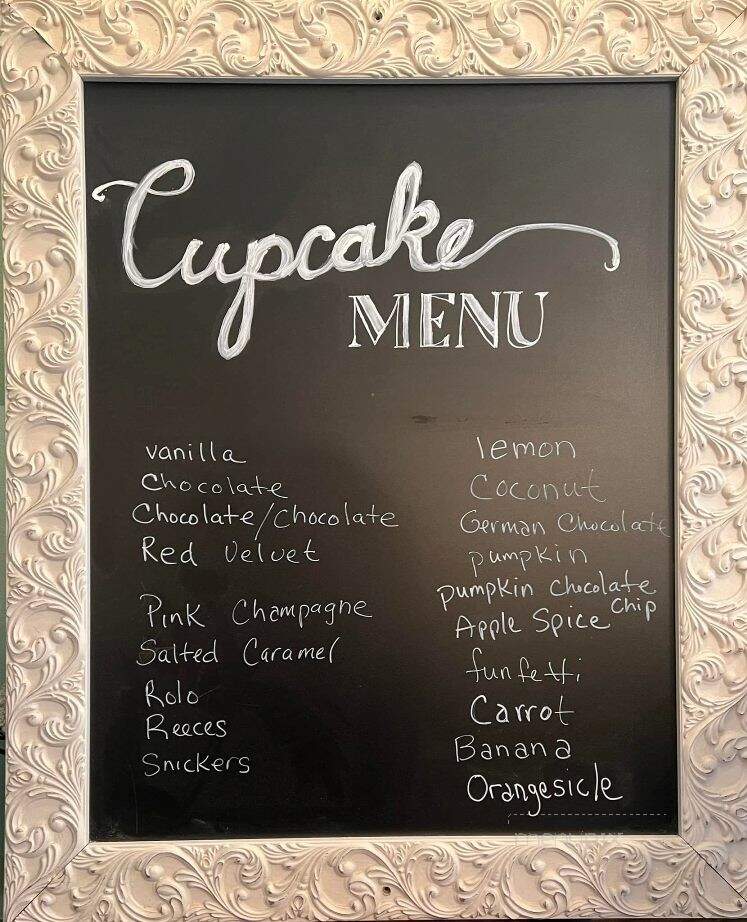 Cupcake
MENU
vanilla
Chocolate
Chocolate/Chocolate
Red Velvet
Pink Champagne
Salted Caramel
Rolo
Reeces
Snickers
lemon
Coconut
German Chocolate
pumpkin
pumpkin chocolate
Chip
Apple Spice
funfetti
Carrot
Banana
Orangesicle